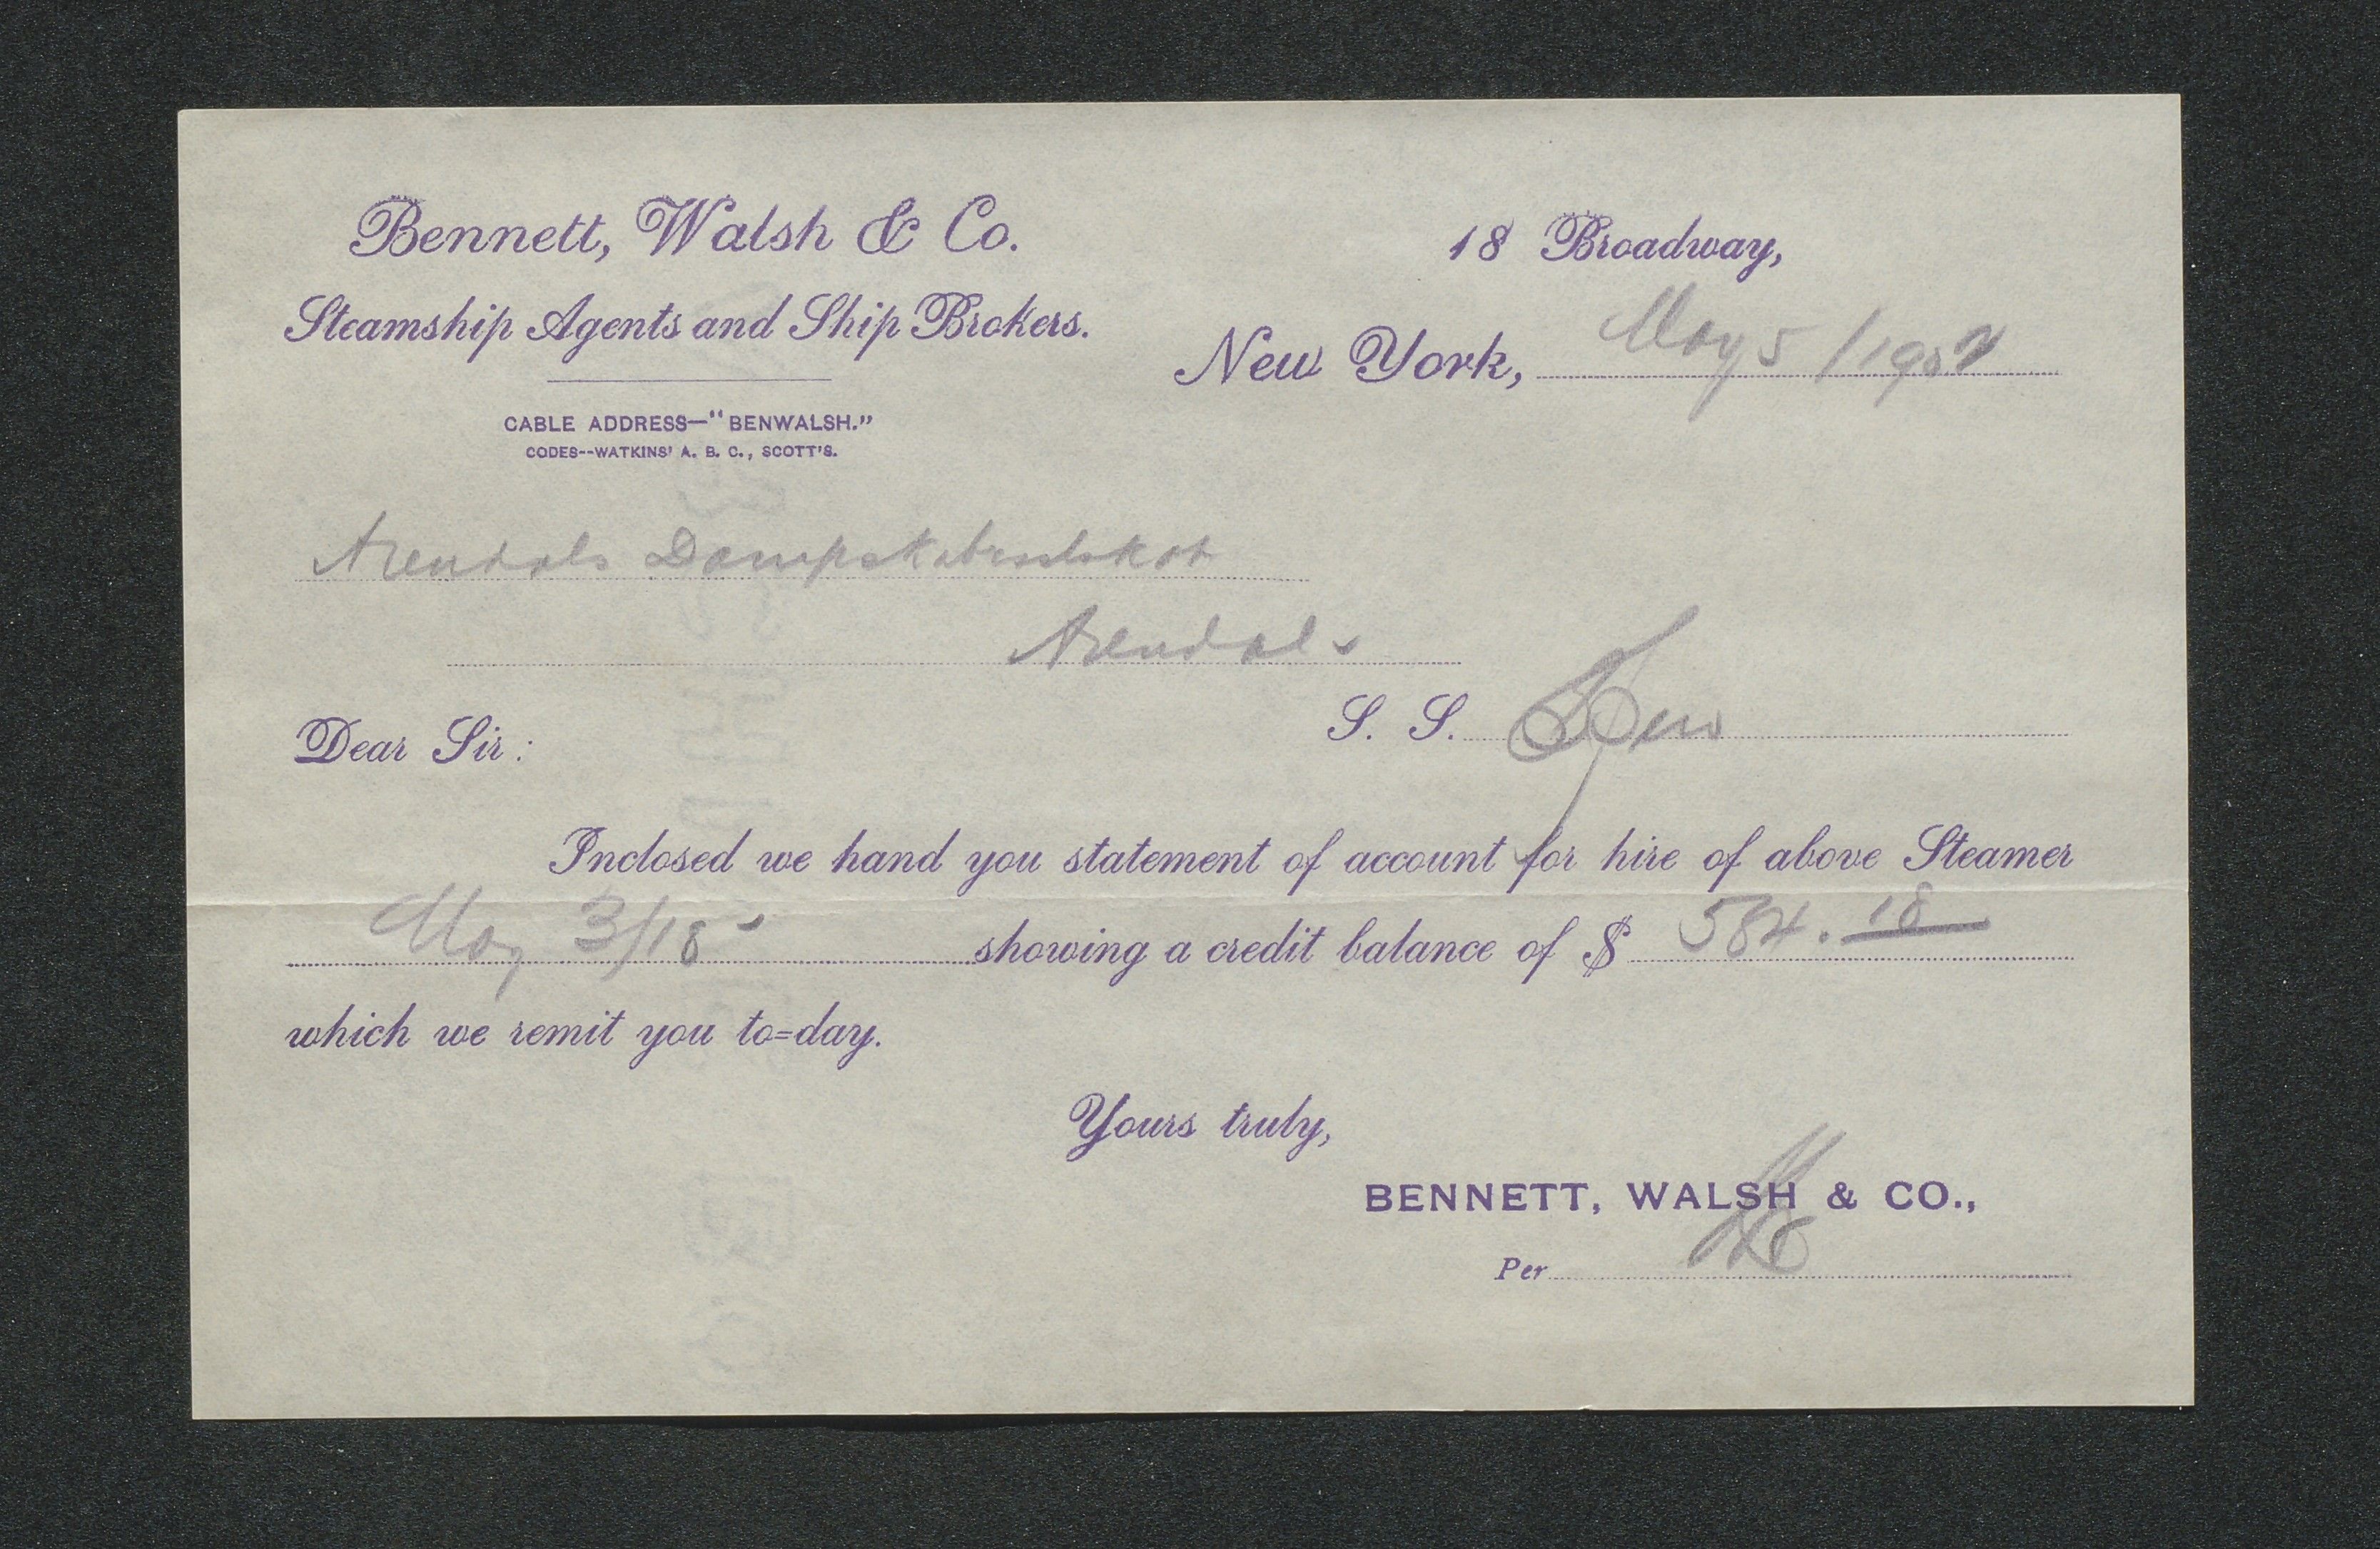 Bennett, Walsh & Co.
Steamship Agents and Ship Brokers.
CABLE ADDRESS—"BENWALSH."
CODES--WATKINS' A. B. C., SCOTT'S.
18 Broadway,
New York, May 5/190
Arendals Dampskibsselskab
Arendal
Dear Sir:
S. S.
Inclosed we hand you statement of account for hire of above Steamer
May 3/18 showing a credit balance of $ 584.18
which we remit you to=day.
Yours truly,
BENNETT, WALSH & CO.,
Per